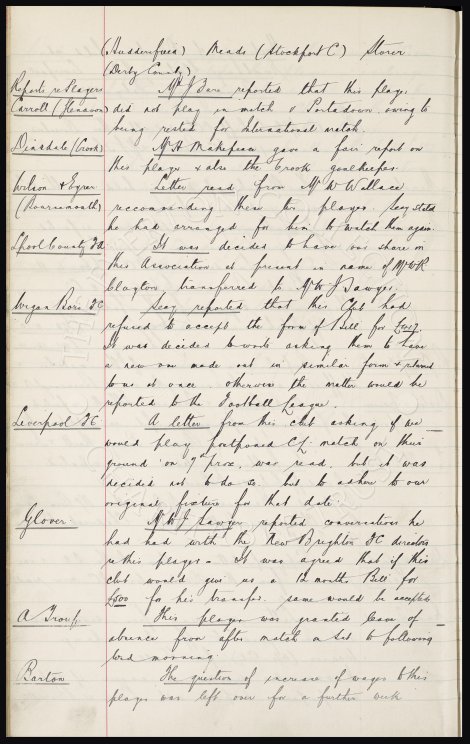 (Huddersfield) Meads (Stockport C) Storer
(Derby County)
Reports re Players Mr J Bare reported that this player
Carroll (Glenavon) did not play in match v Portadown, owing to
being rested for International match.
Dinsdale (Crook) Mr H Makepeace gave a fair report on
this player & also the Crook goalkeeper.
Wilson & Eyres Letter read from Mr W Wallace
(Bournemouth) recommending these two players, Secy stated
he had arranged for him to watch them again.
Lpool County FA It was decided to have our share in
this Association at present in name of Mr W R
Clayton transferred to Mr W J Sawyer.
Wigan Boro FC Secy reported that this Club had
refused to accept the form of Bill for
It was decided to write asking them to have
a new one made out in similar form & returned
to us at once, otherwise the matter would be
reported to the Football League.
Liverpool FC A letter from this club asking if we
would play postponed CL match on their
ground on 9th prox, was read, but it was
decided not to do so, but to adhere to our
original fixture for that date.
Glover. Mr W J Sawyer reported conversations he
had had with the New Brighton FC directors
re this player - It was agreed that if this
club would give us a 12 months Bill for
£500 for his transfer, same would be accepted
A Troup. This player was granted leave of
absence from after match on Sat to following
Wed morning.
Barton The question of increase of wages to this
player was left over for a further week